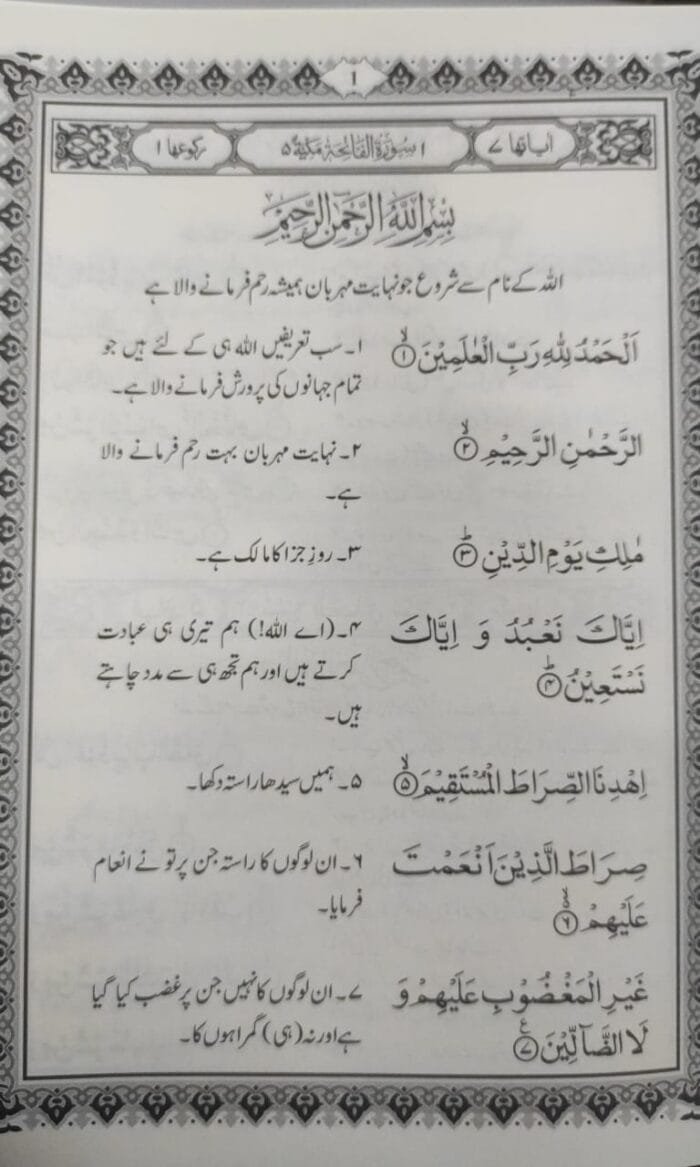 ١
اٰیاتها ٧ ١ سُوْرَةُ الْفَاتِحَةِ مَكِّیَّةٌ ٥ رکوعها ١
بِسْمِ اللّٰهِ الرَّحْمٰنِ الرَّحِیْمِ
اللہ کے نام سے شروع جو نہایت مہربان ہمیشہ رحم فرمانے والا ہے
اَلْحَمْدُ لِلّٰهِ رَبِّ الْعٰلَمِیْنَ ۙ﴿۱﴾
۱۔ سب تعریفیں اللہ ہی کے لئے ہیں جو
تمام جہانوں کی پرورش فرمانے والا ہے۔
الرَّحْمٰنِ الرَّحِیْمِ ۙ﴿۲﴾
۲۔ نہایت مہربان بہت رحم فرمانے والا
ہے۔
مٰلِكِ یَوْمِ الدِّیْنِ ؕ﴿۳﴾
۳۔ روزِ جزا کا مالک ہے۔
اِیَّاكَ نَعْبُدُ وَ اِیَّاكَ
نَسْتَعِیْنُ ؕ﴿۴﴾
۴۔ (اے اللہ!) ہم تیری ہی عبادت
کرتے ہیں اور ہم تجھ ہی سے مدد چاہتے
ہیں۔
اِهْدِنَا الصِّرَاطَ الْمُسْتَقِیْمَ ۙ﴿۵﴾
۵۔ ہمیں سیدھا راستہ دکھا۔
صِرَاطَ الَّذِیْنَ اَنْعَمْتَ
عَلَیْهِمْ ۙ﴿۶﴾
۶۔ ان لوگوں کا راستہ جن پر تو نے انعام
فرمایا۔
غَیْرِ الْمَغْضُوْبِ عَلَیْهِمْ وَ
لَا الضَّآلِّیْنَ ﴿۷﴾ ع
۷۔ ان لوگوں کا نہیں جن پر غضب کیا گیا
ہے اور نہ (ہی) گمراہوں کا۔